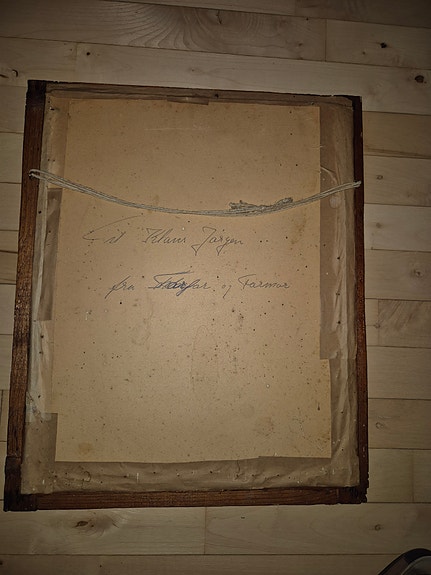 Til Klaus Jørgen ..
fra Farfar og Farmor